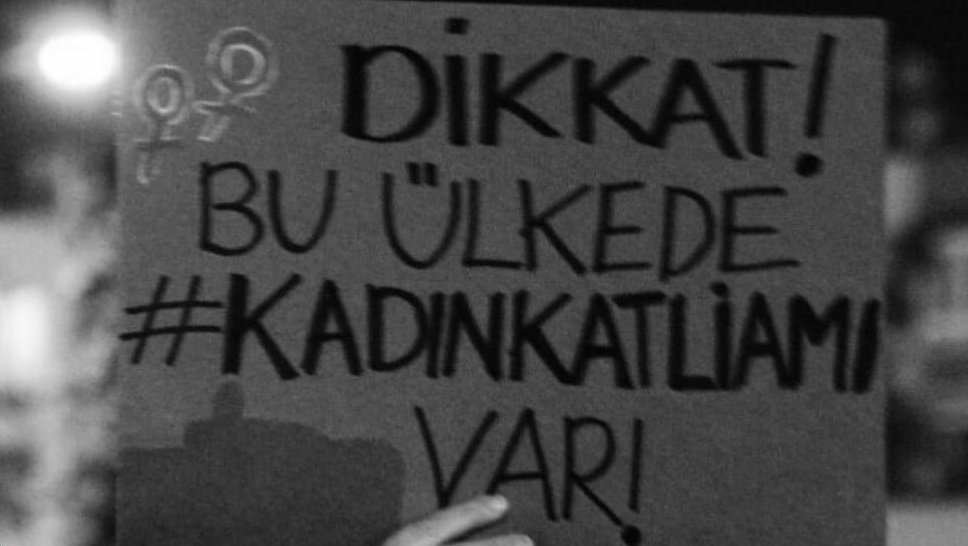 DİKKAT!
BU ÜLKEDE
#KADINKATLİAMI
VAR!